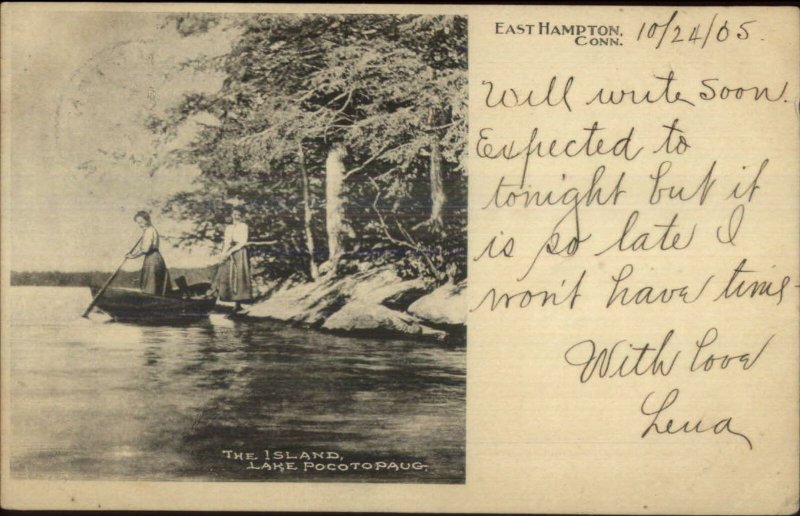 EAST HAMPTON, 10/24/05.
CONN.
Will write soon.
Expected to
tonight but it
is so late I
won't have time-
With love
Lena
THE ISLAND,
LAKE POCOTOPAUG.